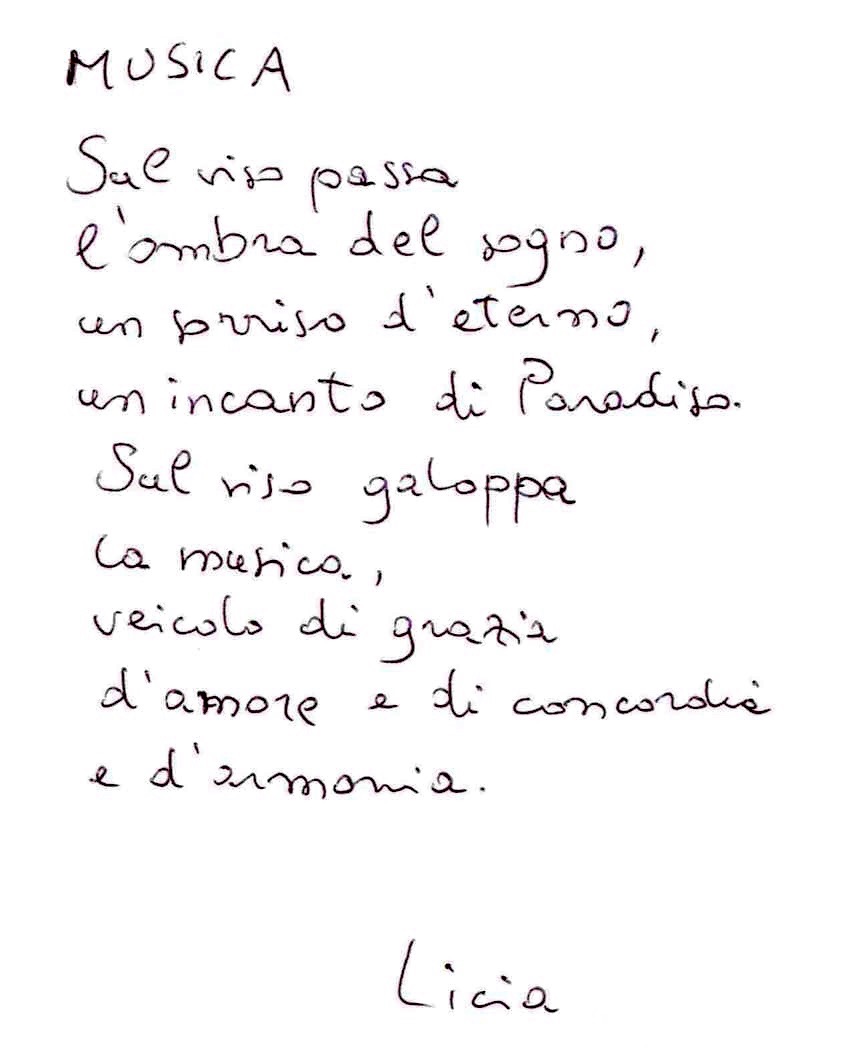 MUSICA
Sul viso passa
l'ombra del sogno,
un sorriso d'eterno,
un incanto di Paradiso.
Sul viso galoppa
la musica,
veicolo di grazia
d'amore e di concordia
e d'armonia.
Licia